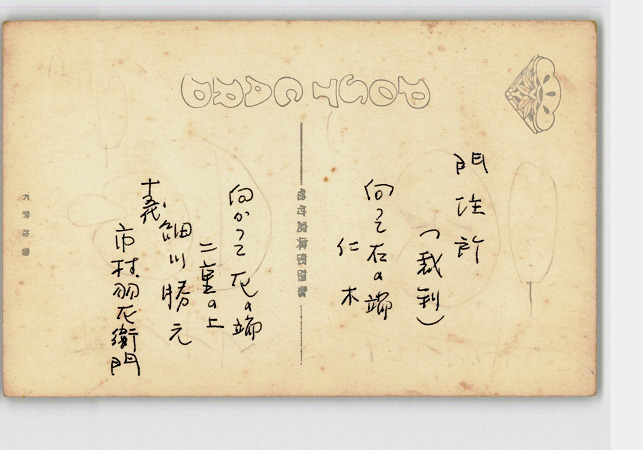 POST CARD
門注許
(裁判)
向って右の端
仁木
向かって左の端
二重の上
細川勝元
十五代
市村羽左衛門